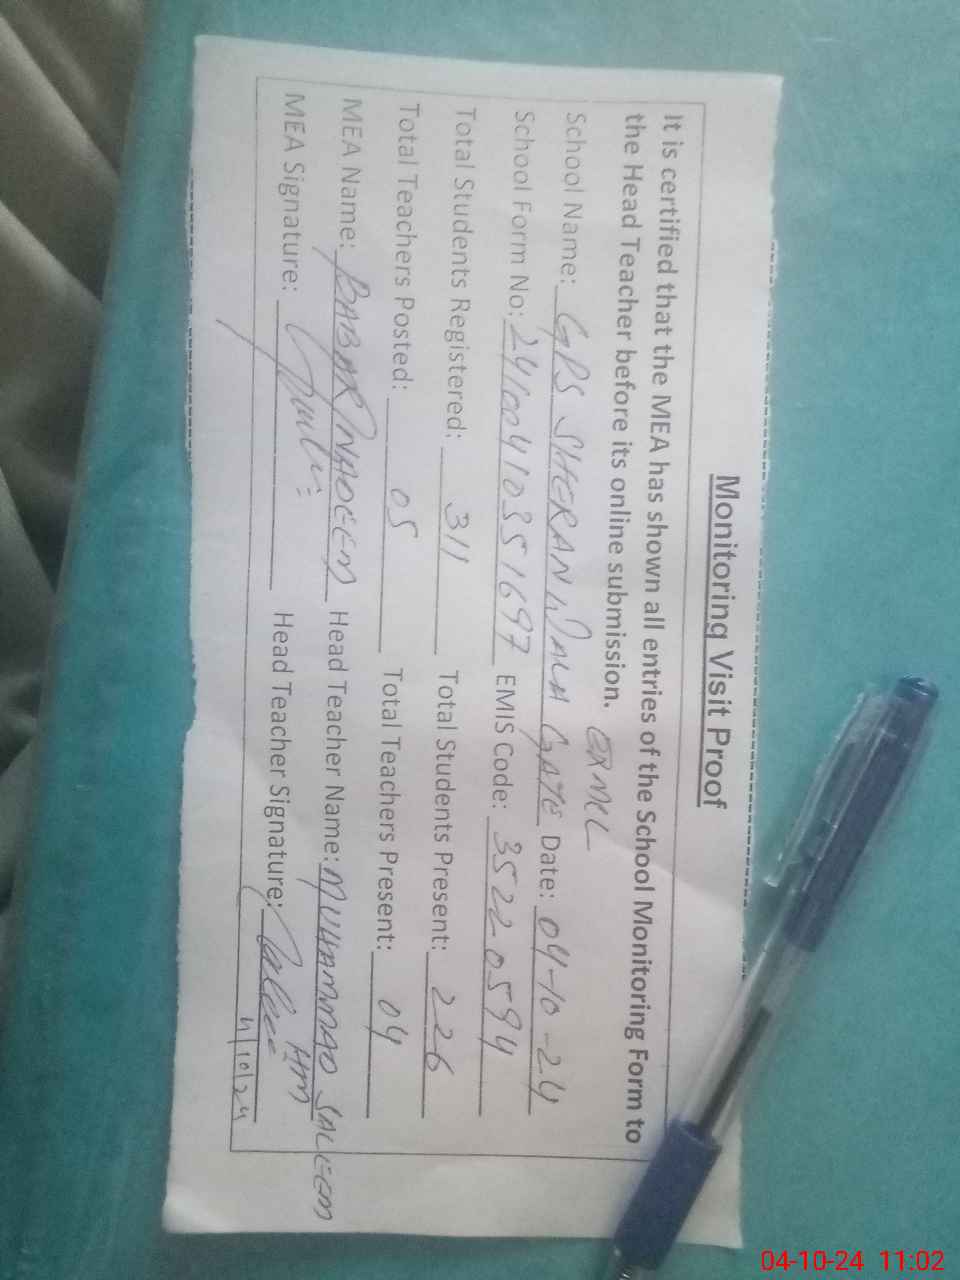 Monitoring Visit Proof
It is certified that the MEA has shown all entries of the School Monitoring Form to
the Head Teacher before its online submission.
School Name: GPS SHERANWALA GATE Date: 04-10-24
School Form No: 24100410351697 EMIS Code: 35220594
Total Students Registered: 311 Total Students Present: 226
Total Teachers Posted: 05 Total Teachers Present: 04
MEA Name: BABAR NAOEEM Head Teacher Name: MUHAMMAD SALEEM
MEA Signature: Head Teacher Signature: HM
4/10/24
04-10-24 11:02